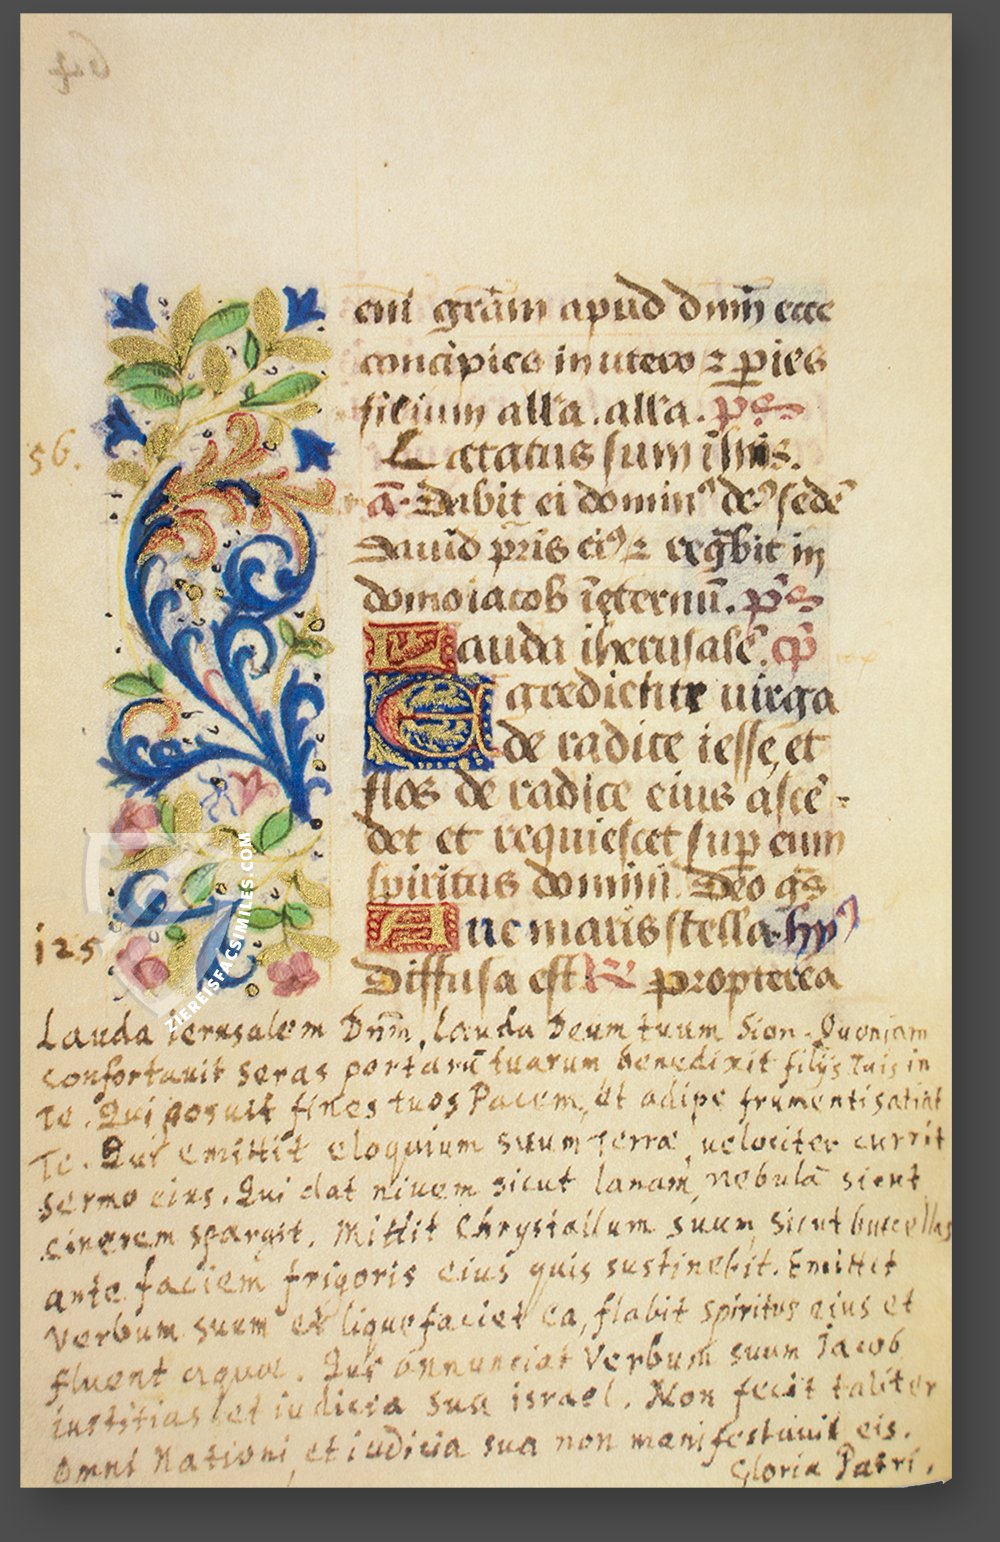 64
eni gr̄am apud dnm̄ ecce
concipies in utero ⁊ ꝑies
filium all'a . all'a . p̄s
Letatus sum in hiis.
56.
a͞. Dabit ei domin⁹ de⁹ sedē
Dauid pr̄is ei⁹ ⁊ regn̄bit in
domo iacob ī eternū. p̄s
Lauda iherusalē. cp̄
Egredietur uirga
de radice iesse, et
flos de radice eius ascē-
det et requiescet suꝑ eum
spiritus domini. Deo gr̄s
Aue maris stella. hy⁹
125
Diffusa est propterea
Lauda Ierusalem Dnm̄, lauda Deum tuum Sion. Quoniam
confortauit seras portarū tuarum benedixit filijs tuis in
Te. Qui posuit fines tuos Pacem, et adipe frumenti satiat
Te. Qui emittit eloquium suum Terrae, uelociter currit
sermo eius. Qui dat niuem sicut lanam, nebulā sicut
cinerem spargit. Mittit Chrystallum suum, sicut buccellas
ante faciem frigoris eius quis sustinebit. Emittet
Verbum suum et liquefaciet ea, flabit spiritus eius et
fluent aquae. Qui annunciat Verbum suum Iacob
iustitias et iudicia sua israel. Non fecit taliter
omni Nationi, et iudicia sua non manifestauit eis.
Gloria Patri.
ZIEREISFACSIMILES.COM